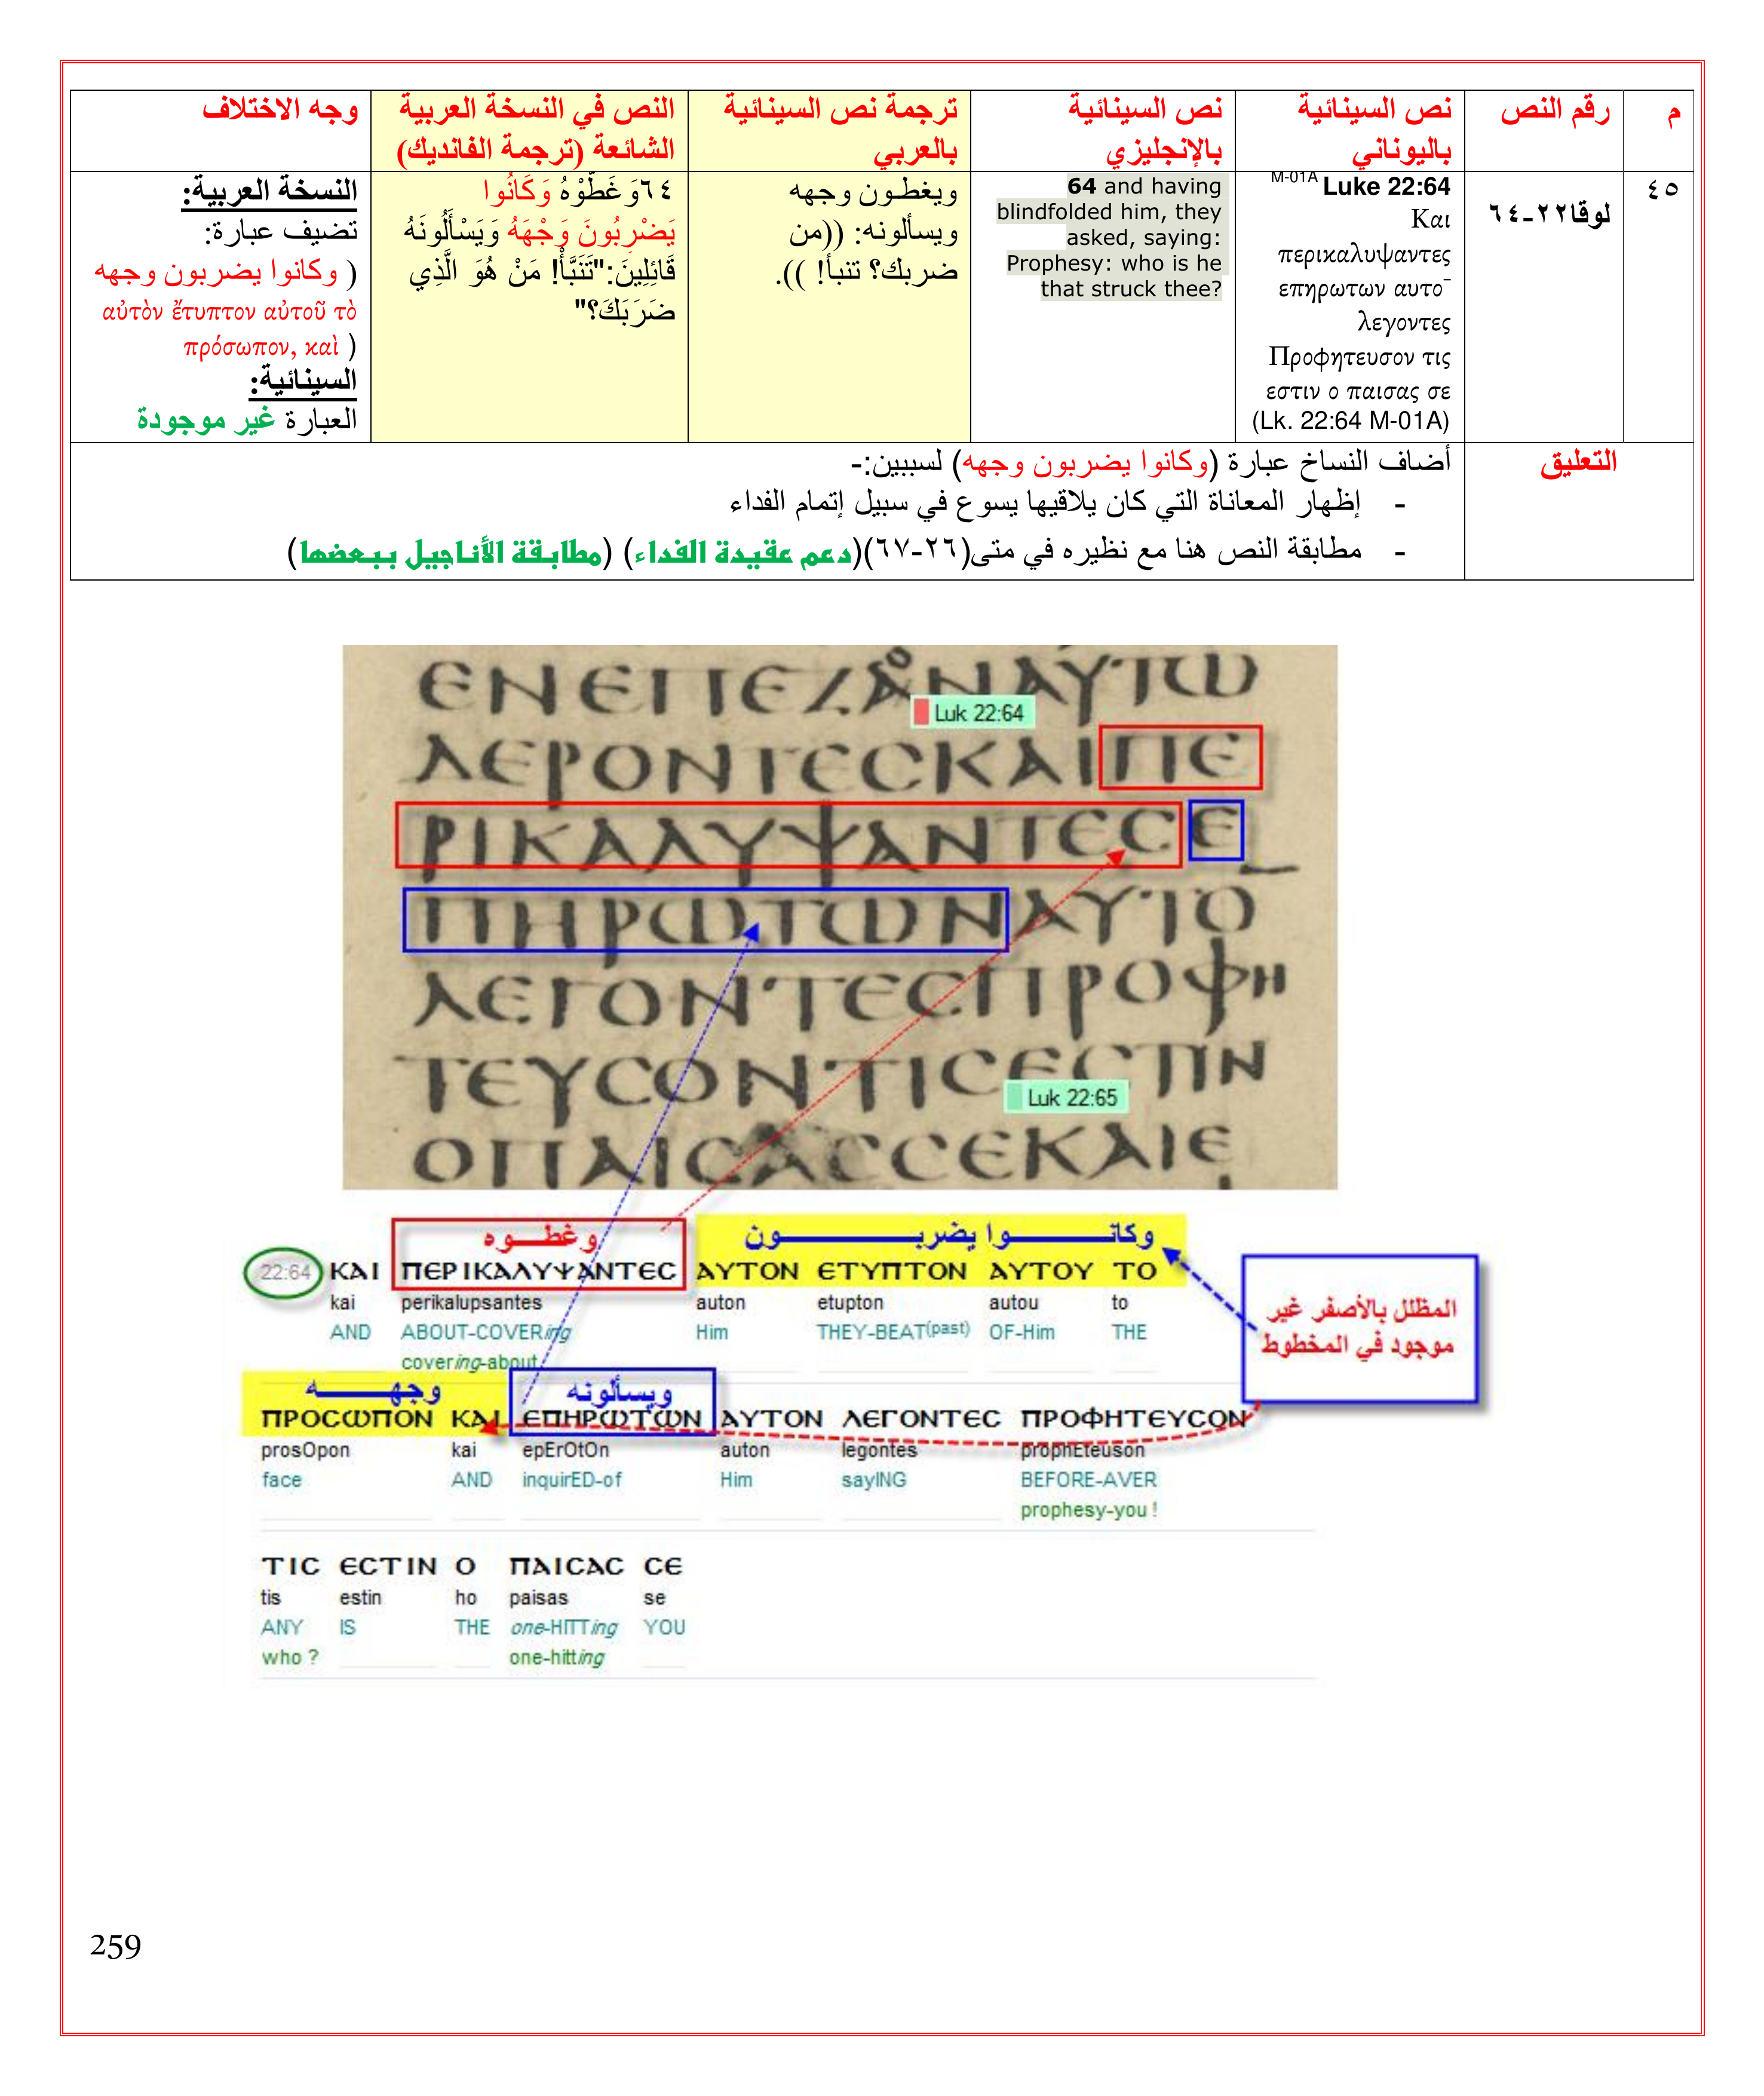 م
رقم النص
نص السينائية
باليوناني
نص السينائية
بالإنجليزي
ترجمة نص السينائية
بالعربي
النص في النسخة العربية
الشائعة (ترجمة الفانديك)
وجه الاختلاف
٤٥
لوقا٢٢-٦٤
M-01A Luke 22:64
Και
περικαλυψαντες
επηρωτων αυτο¯
λεγοντες
Προφητευσον τις
εστιν ο παισας σε
(Lk. 22:64 M-01A)
64 and having
blindfolded him, they
asked, saying:
Prophesy: who is he
that struck thee?
ويغطون وجهه
ويسألونه: ((من
ضربك؟ تنبأ! )).
٦٤وَ غَطَّوْهُ وَكَانُوا
يَضْرِبُونَ وَجْهَهُ وَيَسْأَلُونَهُ
قَائِلِينَ:"تَنَبَّأْ! مَنْ هُوَ الَّذِي
ضَرَبَكَ؟"
النسخة العربية:
تضيف عبارة:
( وكانوا يضربون وجهه
αὐτὸν ἔτυπτον αὐτοῦ τὸ
πρόσωπον, καὶ )
السينائية:
العبارة غير موجودة
التعليق
أضاف النساخ عبارة (وكانوا يضربون وجهه) لسببين:-
- إظهار المعاناة التي كان يلاقيها يسوع في سبيل إتمام الفداء
- مطابقة النص هنا مع نظيره في متى(٢٦-٦٧)(دعم عقيدة الفداء) (مطابقة الأناجيل ببعضها)
ΕΝΕΠΕΖΑΝΑΥΤΩ
Luk 22:64
ΔΕΡΟΝΤΕCΚΑΙΠΕ
ΡΙΚΑΛΥΨΑΝΤΕCΕ
ΠΗΡΩΤΩΝΑΥΤΟ
ΛΕΓΟΝΤΕCΠΡΟΦΗ
ΤΕΥCΟΝΤΙCΕCΤΙΝ
Luk 22:65
ΟΠΑΙCΑCCΕΚΑΙΕ
وغطوه
وكانوا يضربون
22:64 ΚΑΙ ΠΕΡΙΚΑΛΥΨΑΝΤΕC ΑΥΤΟΝ ΕΤΥΠΤΟΝ ΑΥΤΟΥ ΤΟ
kai perikalupsantes auton etupton autou to
AND ABOUT-COVERing Him THEY-BEAT(past) OF-Him THE
covering-about
المظلل بالأصفر غير
موجود في المخطوط
وجهه
ويسألونه
ΠΡΟCΩΠΟΝ ΚΑΙ ΕΠΗΡΩΤΩΝ ΑΥΤΟΝ ΛΕΓΟΝΤΕC ΠΡΟΦΗΤΕΥCΟΝ
prosOpon kai epErOtOn auton legontes prophEteuson
face AND inquirED-of Him sayING BEFORE-AVER
prophesy-you !
ΤΙC ΕCΤΙΝ Ο ΠΑΙCΑC CΕ
tis estin ho paisas se
ANY IS THE one-HITTing YOU
who ? one-hitting
259